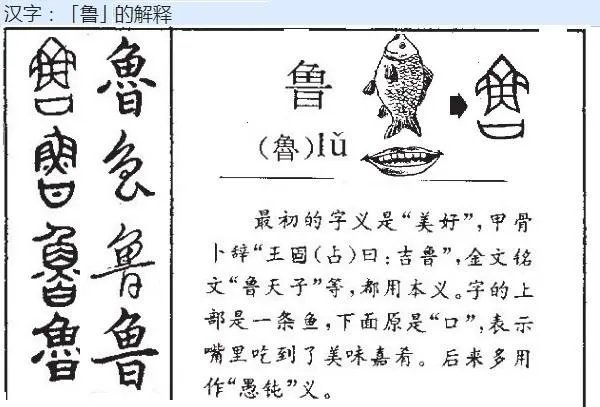 汉字：「鲁」的解释
鲁
(魯)lǔ
最初的字义是“美好”，甲骨
卜辞“王固(占)曰：吉鲁”，金文铭
文“鲁天子”等，都用本义。字的上
部是一条鱼，下面原是“口”，表示
嘴里吃到了美味嘉肴。后来多用
作“愚钝”义。
魯
魯
鲁
鲁